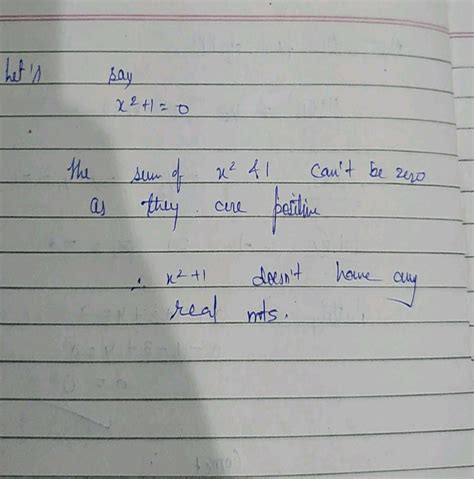 Let's say
x²+1=0
the sum of x² & 1 can't be zero
as they are positive
∴ x²+1 doesn't have any
real rots.